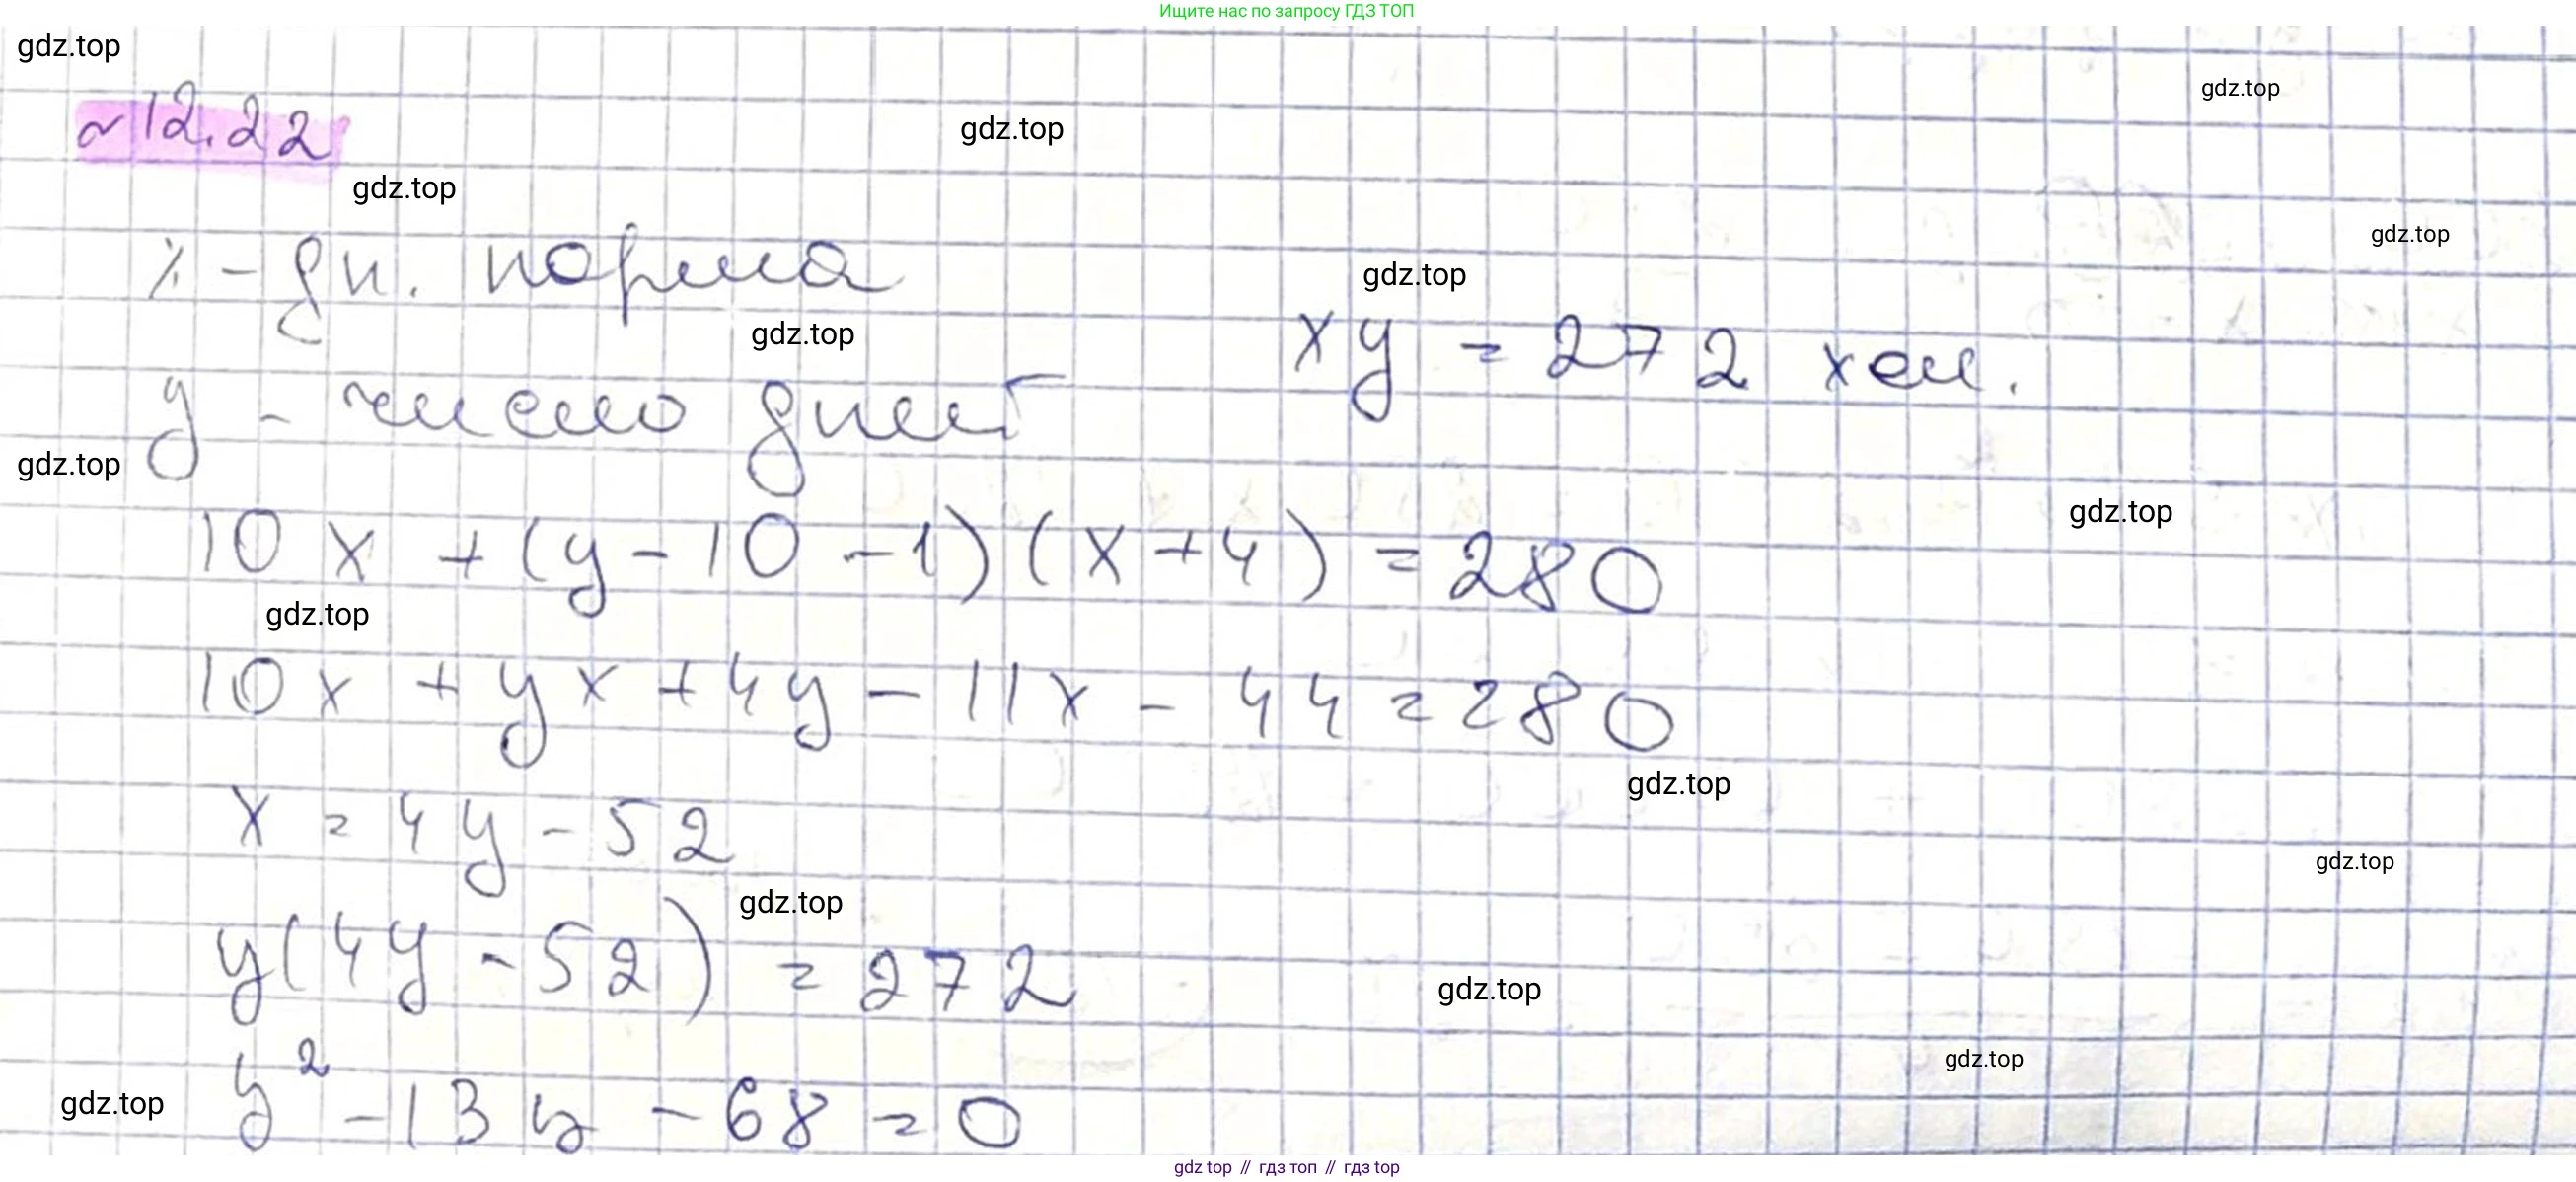 Ищите нас по запросу ГДЗ ТОП
gdz.top
gdz.top
~12.22
gdz.top
gdz.top
gdz.top
x - дн. норма
gdz.top
gdz.top
xy = 272 хем.
y - число дней
gdz.top
gdz.top
10x + (y-10-1)(x+4) = 280
gdz.top
10x + yx + 4y - 11x - 44 = 280
gdz.top
x = 4y - 52
gdz.top
gdz.top
y(4y - 52) = 272
gdz.top
gdz.top
y² - 13y - 68 = 0
gdz.top
gdz top // гдз топ // гдз top